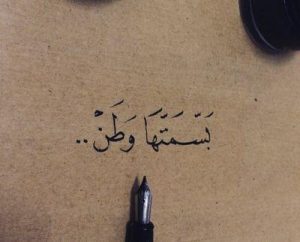 بَسّمَتٌهَا وَطَنْ..